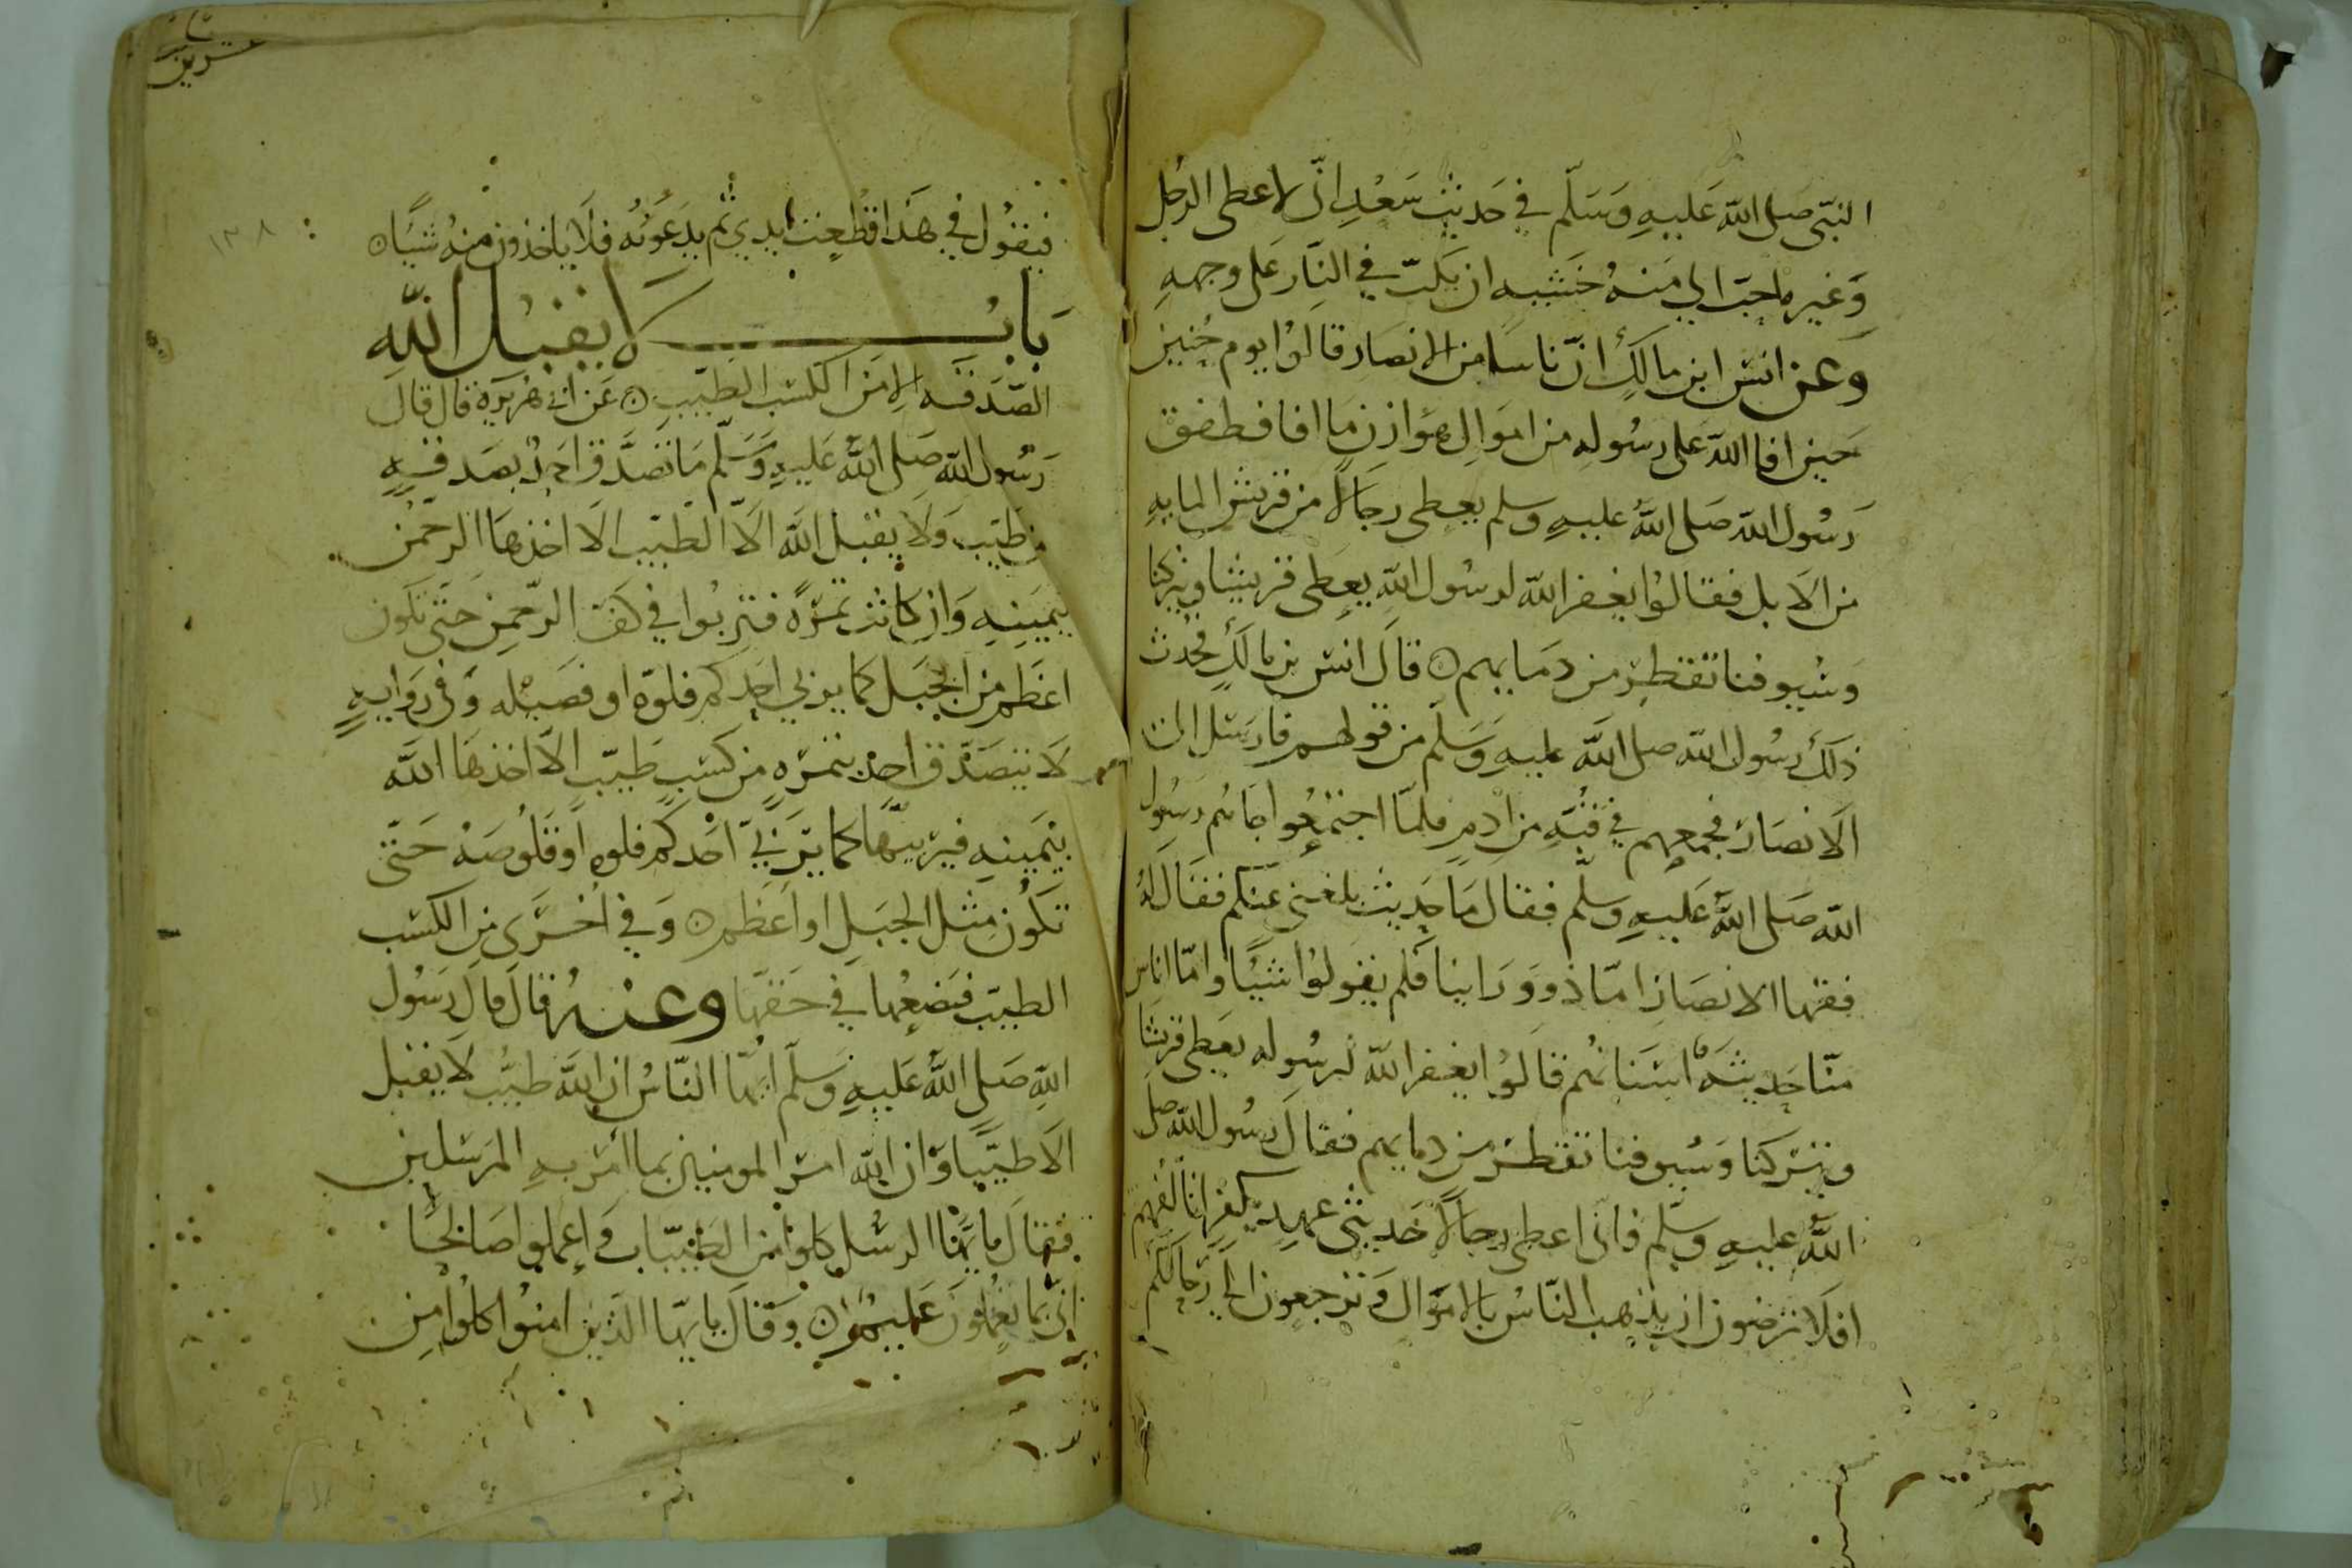 النبي صلى الله عليه وسلم في حديث سعد اني لاعطى الرجل
وغيره احب الي منه خشية ان يكب في النار على وجهه
وعن انس ابن مالك ان ناسا من الانصار قالوا يوم حنين
حين افا الله على رسوله من اموال هوازن ما افا فطفق
رسول الله صلى الله عليه وسلم يعطى رجالا من قريش المايه
من الابل فقالوا يغفر الله لرسول الله يعطى قريشا ويتركنا
وسيوفنا تقطر من دمايهم قال انس بن مالك فحدث
ذلك رسول الله صلى الله عليه وسلم من قولهم فارسل الى
الانصار فجمعهم في قبة من ادم فلما اجتمعوا جاهم رسول
الله صلى الله عليه وسلم فقال ما حديث بلغني عنكم فقال له
فقها الانصار اما ذوو راينا فلم يقولوا شيئا واما اناس
منا حديثة اسنانهم قالوا يغفر الله لرسوله يعطى قريشا
ويتركنا وسيوفنا تقطر من دمايهم فقال رسول الله صلى
الله عليه وسلم فانى اعطى رجالا حديثى عهد بكفر اتالفهم
افلا ترضون ان يذهب الناس بالاموال وترجعون الى رحالكم
١٣٨
فيقول في هذا قطعت يدي ثم يدعونه فلا ياخذون منه شيئا
باب لا يقبل الله
الصدقة الا من الكسب الطيب عن ابي هريرة قال قال
رسول الله صلى الله عليه وسلم ما تصدق احد بصدقة
من طيب ولا يقبل الله الا الطيب الا اخذها الرحمن
بيمينه وان كانت تمرة فتربوا في كف الرحمن حتى تكون
اعظم من الجبل كما يربي احدكم فلوه او فصيله وفي رواية
لا يتصدق احد بتمرة من كسب طيب الا اخذها الله
بيمينه فيربيها كما يربي احدكم فلوه او قلوصه حتى
تكون مثل الجبل او اعظم وفي اخرى من الكسب
الطيب فيضعها في حقها وعنه قال قال رسول
الله صلى الله عليه وسلم ايها الناس ان الله طيب لا يقبل
الا طيبا وان الله امر المومنين بما امر به المرسلين
فقال يايها الرسل كلوا من الطيبات واعملوا صالحا
اني بما تعملون عليم وقال يايها الذين امنوا كلوا من